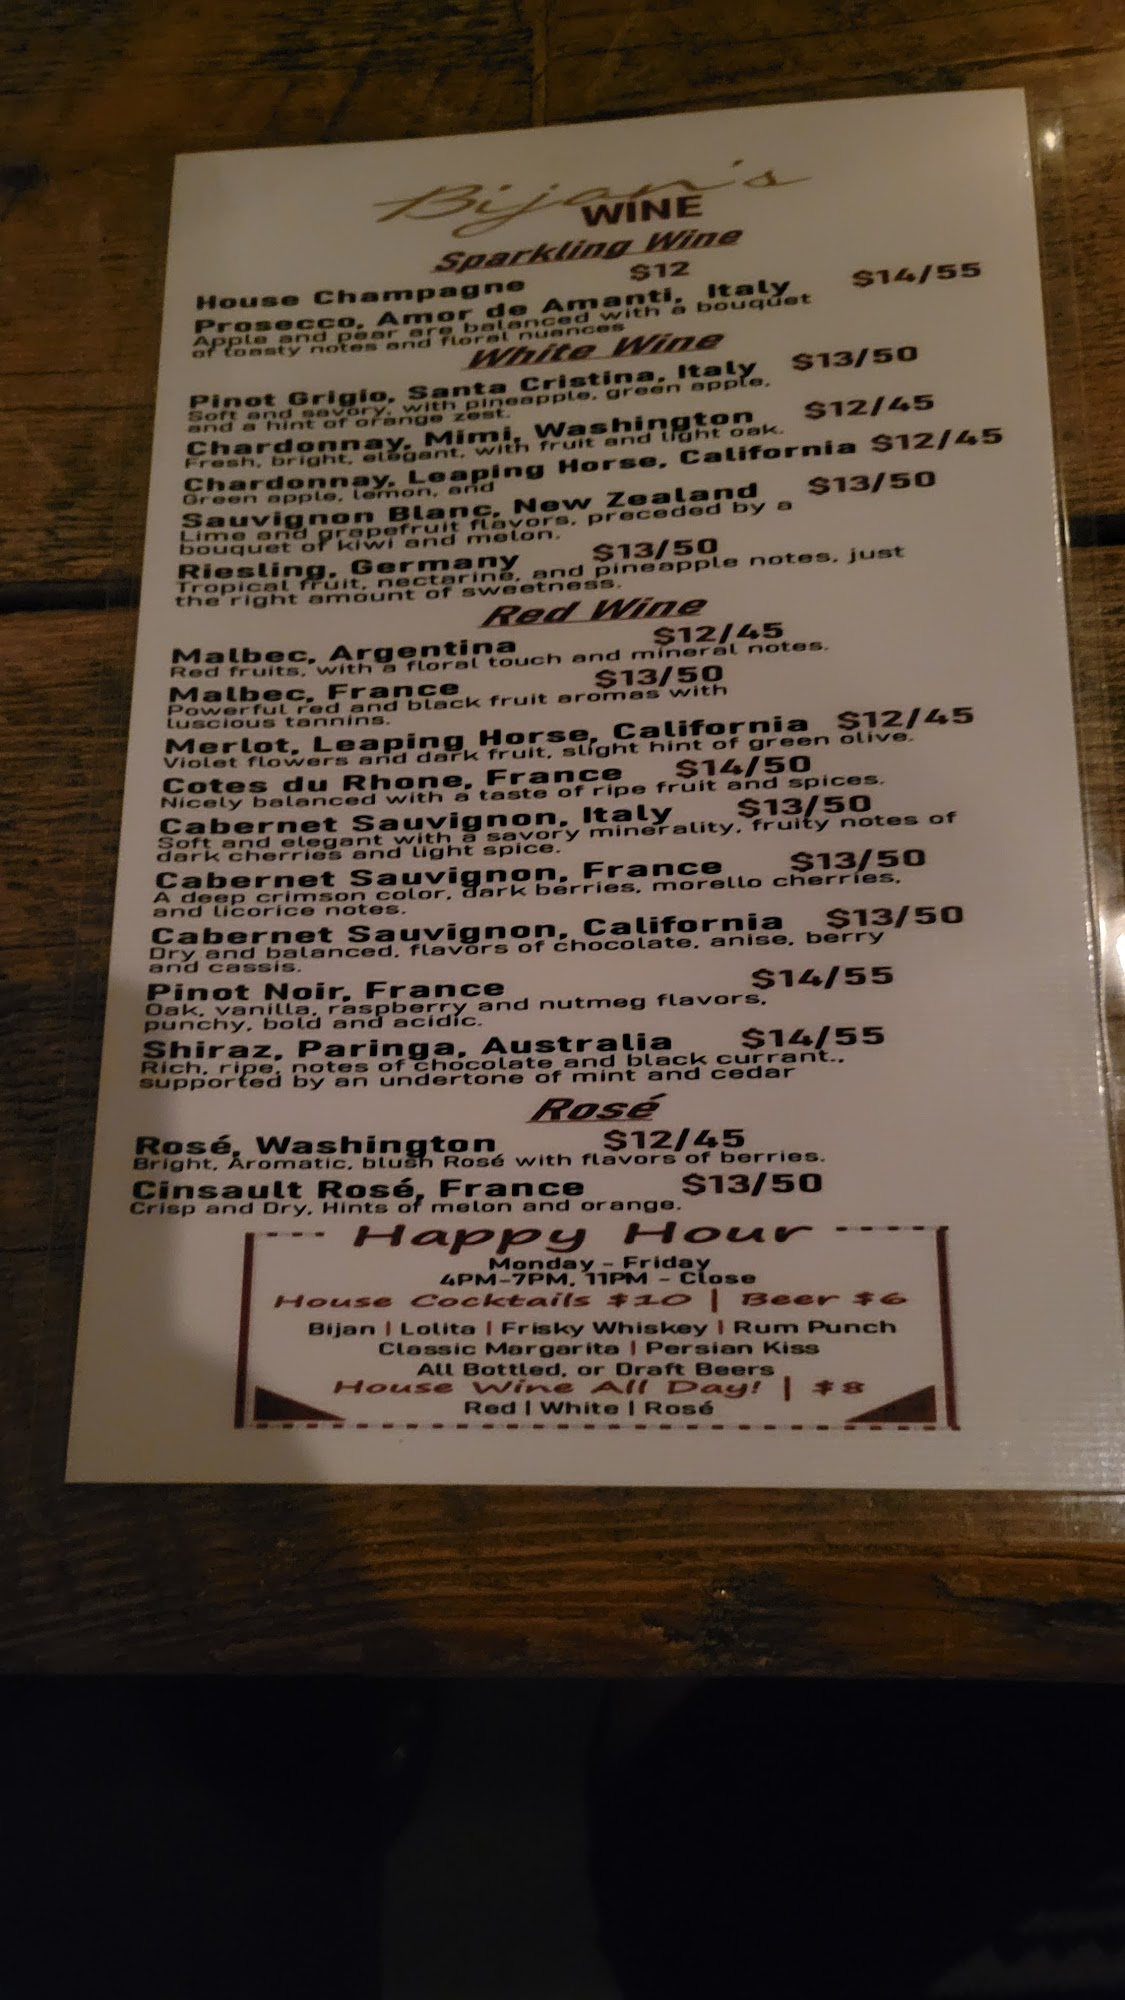 Bijan's
WINE
Sparkling Wine
House Champagne $12
Prosecco, Amor de Amanti, Italy $14/55
Apple and pear are balanced with a bouquet
of toasty notes and floral nuances
White Wine
Pinot Grigio, Santa Cristina, Italy $13/50
Soft and savory, with pineapple, green apple,
and a hint of orange zest.
Chardonnay, Mimi, Washington $12/45
Fresh, bright, elegant, with fruit and light oak.
Chardonnay, Leaping Horse, California $12/45
Green apple, lemon, and
Sauvignon Blanc, New Zealand $13/50
Lime and grapefruit flavors, preceded by a
bouquet of kiwi and melon.
Riesling, Germany $13/50
Tropical fruit, nectarine, and pineapple notes, just
the right amount of sweetness.
Red Wine
Malbec, Argentina $12/45
Red fruits, with a floral touch and mineral notes.
Malbec, France $13/50
Powerful red and black fruit aromas with
luscious tannins.
Merlot, Leaping Horse, California $12/45
Violet flowers and dark fruit, slight hint of green olive.
Cotes du Rhone, France $14/50
Nicely balanced with a taste of ripe fruit and spices.
Cabernet Sauvignon, Italy $13/50
Soft and elegant with a savory minerality, fruity notes of
dark cherries and light spice.
Cabernet Sauvignon, France $13/50
A deep crimson color, dark berries, morello cherries,
and licorice notes.
Cabernet Sauvignon, California $13/50
Dry and balanced, flavors of chocolate, anise, berry
and cassis.
Pinot Noir, France $14/55
Oak, vanilla, raspberry and nutmeg flavors,
punchy, bold and acidic.
Shiraz, Paringa, Australia $14/55
Rich, ripe, notes of chocolate and black currant.,
supported by an undertone of mint and cedar
Rosé
Rosé, Washington $12/45
Bright, Aromatic, blush Rosé with flavors of berries.
Cinsault Rosé, France $13/50
Crisp and Dry, Hints of melon and orange.
Happy Hour
Monday - Friday
4PM-7PM, 11PM - Close
House Cocktails $10 | Beer $6
Bijan | Lolita | Frisky Whiskey | Rum Punch
Classic Margarita | Persian Kiss
All Bottled, or Draft Beers
House Wine All Day! | $8
Red | White | Rosé